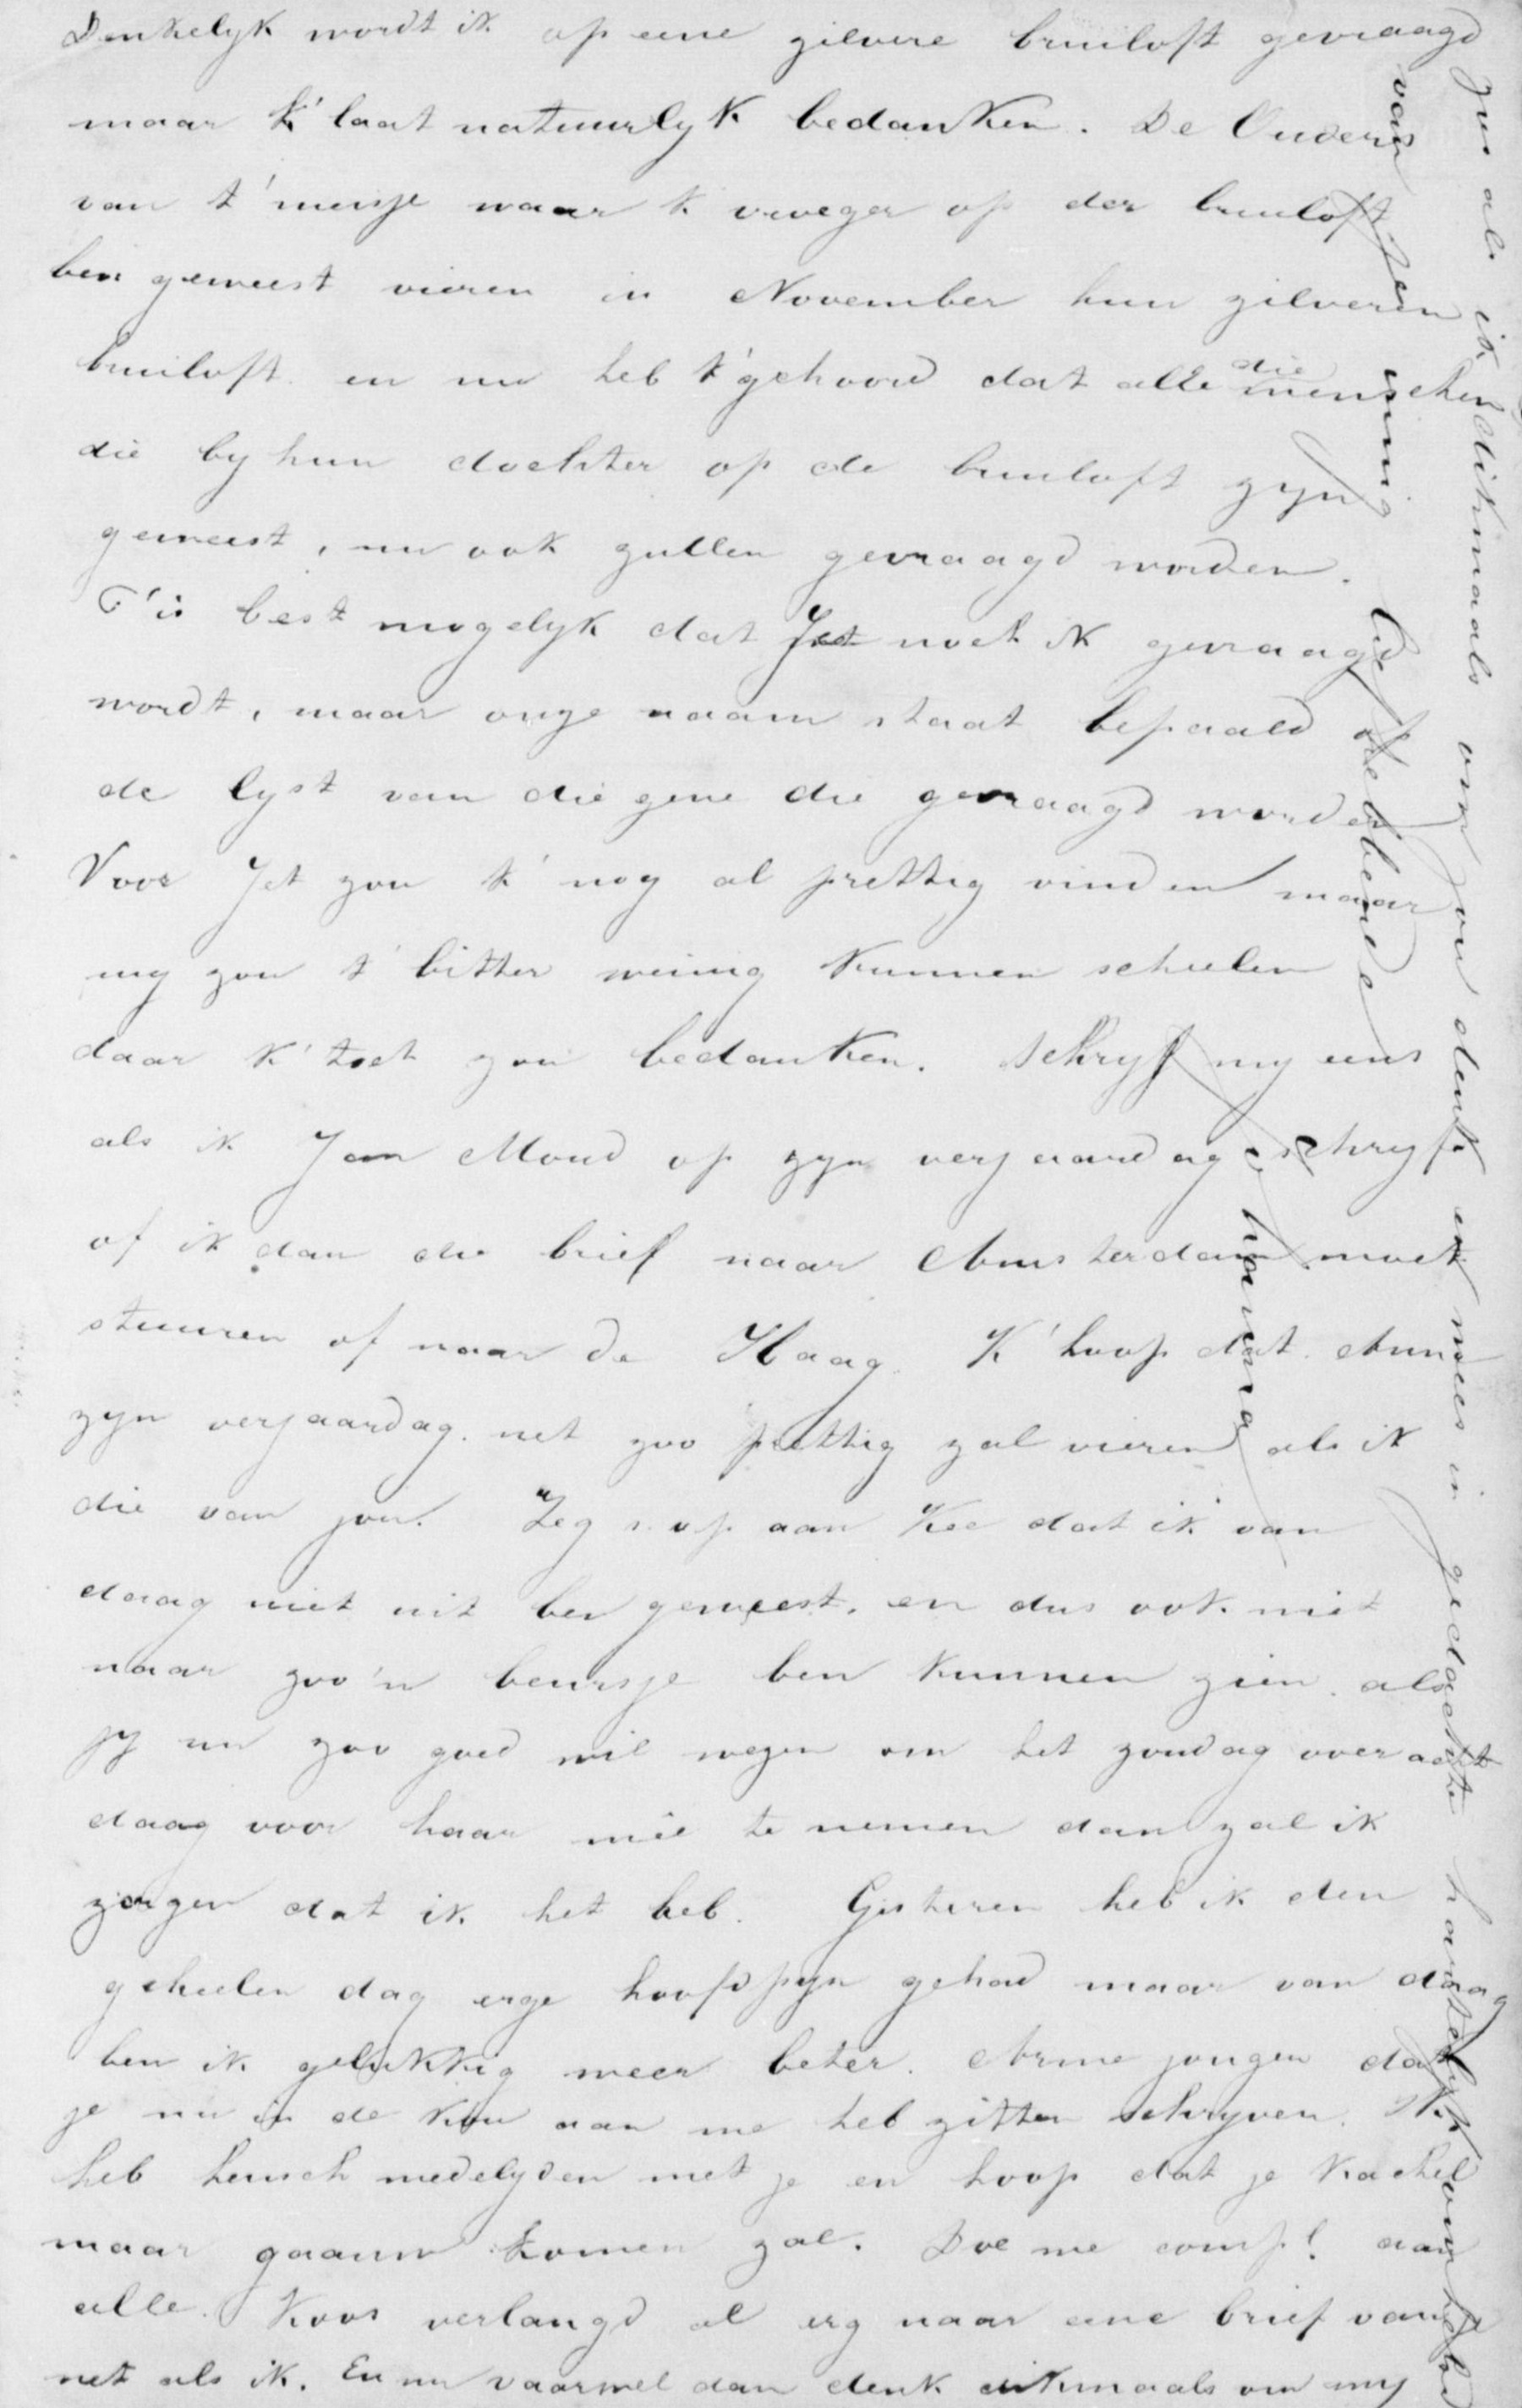 Denkelyk wordt ik op eene zilvere bruiloft gevraagd
maar k' laat natuurlyk bedanken. De Ouders
van t' meisje waar k vroeger op der bruiloft
ben geweest vieren in November hun zilveren
bruiloft en nu heb k' gehoord dat alle die menschen
die by hun dochter op de bruiloft zyn
geweest, nu ook zullen gevraagd worden.
T' is best mogelyk dat Jet noch ik gevraagd
wordt, maar onze naam staat bepaald op
de lyst van die gene die gevraagd worden
Voor Jet zou k' nog al prettig vinden maar
my zou t' bitter weinig kunnen schelen
daar k' toch zou bedanken. Schryf my eens
als ik Jan Moud op zyn verjaardag schryf
of ik dan die brief naar Amsterdam moet
stuuren of naar De Haag. K' hoop dat
zyn verjaardag net zoo prettig zal vieren als ik
die van jou. Zeg s.v.p aan Kee dat ik van
daag niet uit ben geweest, en dus ook niet
naar zoo'n beursje ben kunnen zien. als
jy nu zoo goed wil wezen om het zondag over acht
daag voor haar meê te nemen dan zal ik
zorgen dat ik het heb. Gisteren heb ik den
geheelen dag erge hoofdpyn gehad maar van daag
ben ik gelukkig weer beter. Arme jongen dat
je nu in de kou aan me heb zitten schryven. Ik
heb heusch medelyden met je en hoop dat je kachel
maar gaauw komen zal. Doe me compl. aan
alle. Koos verlangd al erg naar eene brief van je
net als ik. En nu vaarwel dan denk dikmaals om my
zus als ik dikmaals om jou denk en wees in gedachte hartelyk omhelsd
van je innig liefhebbende